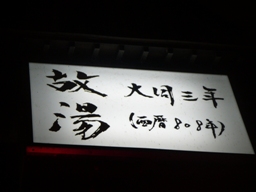 故湯
大同三年
(西暦808年)